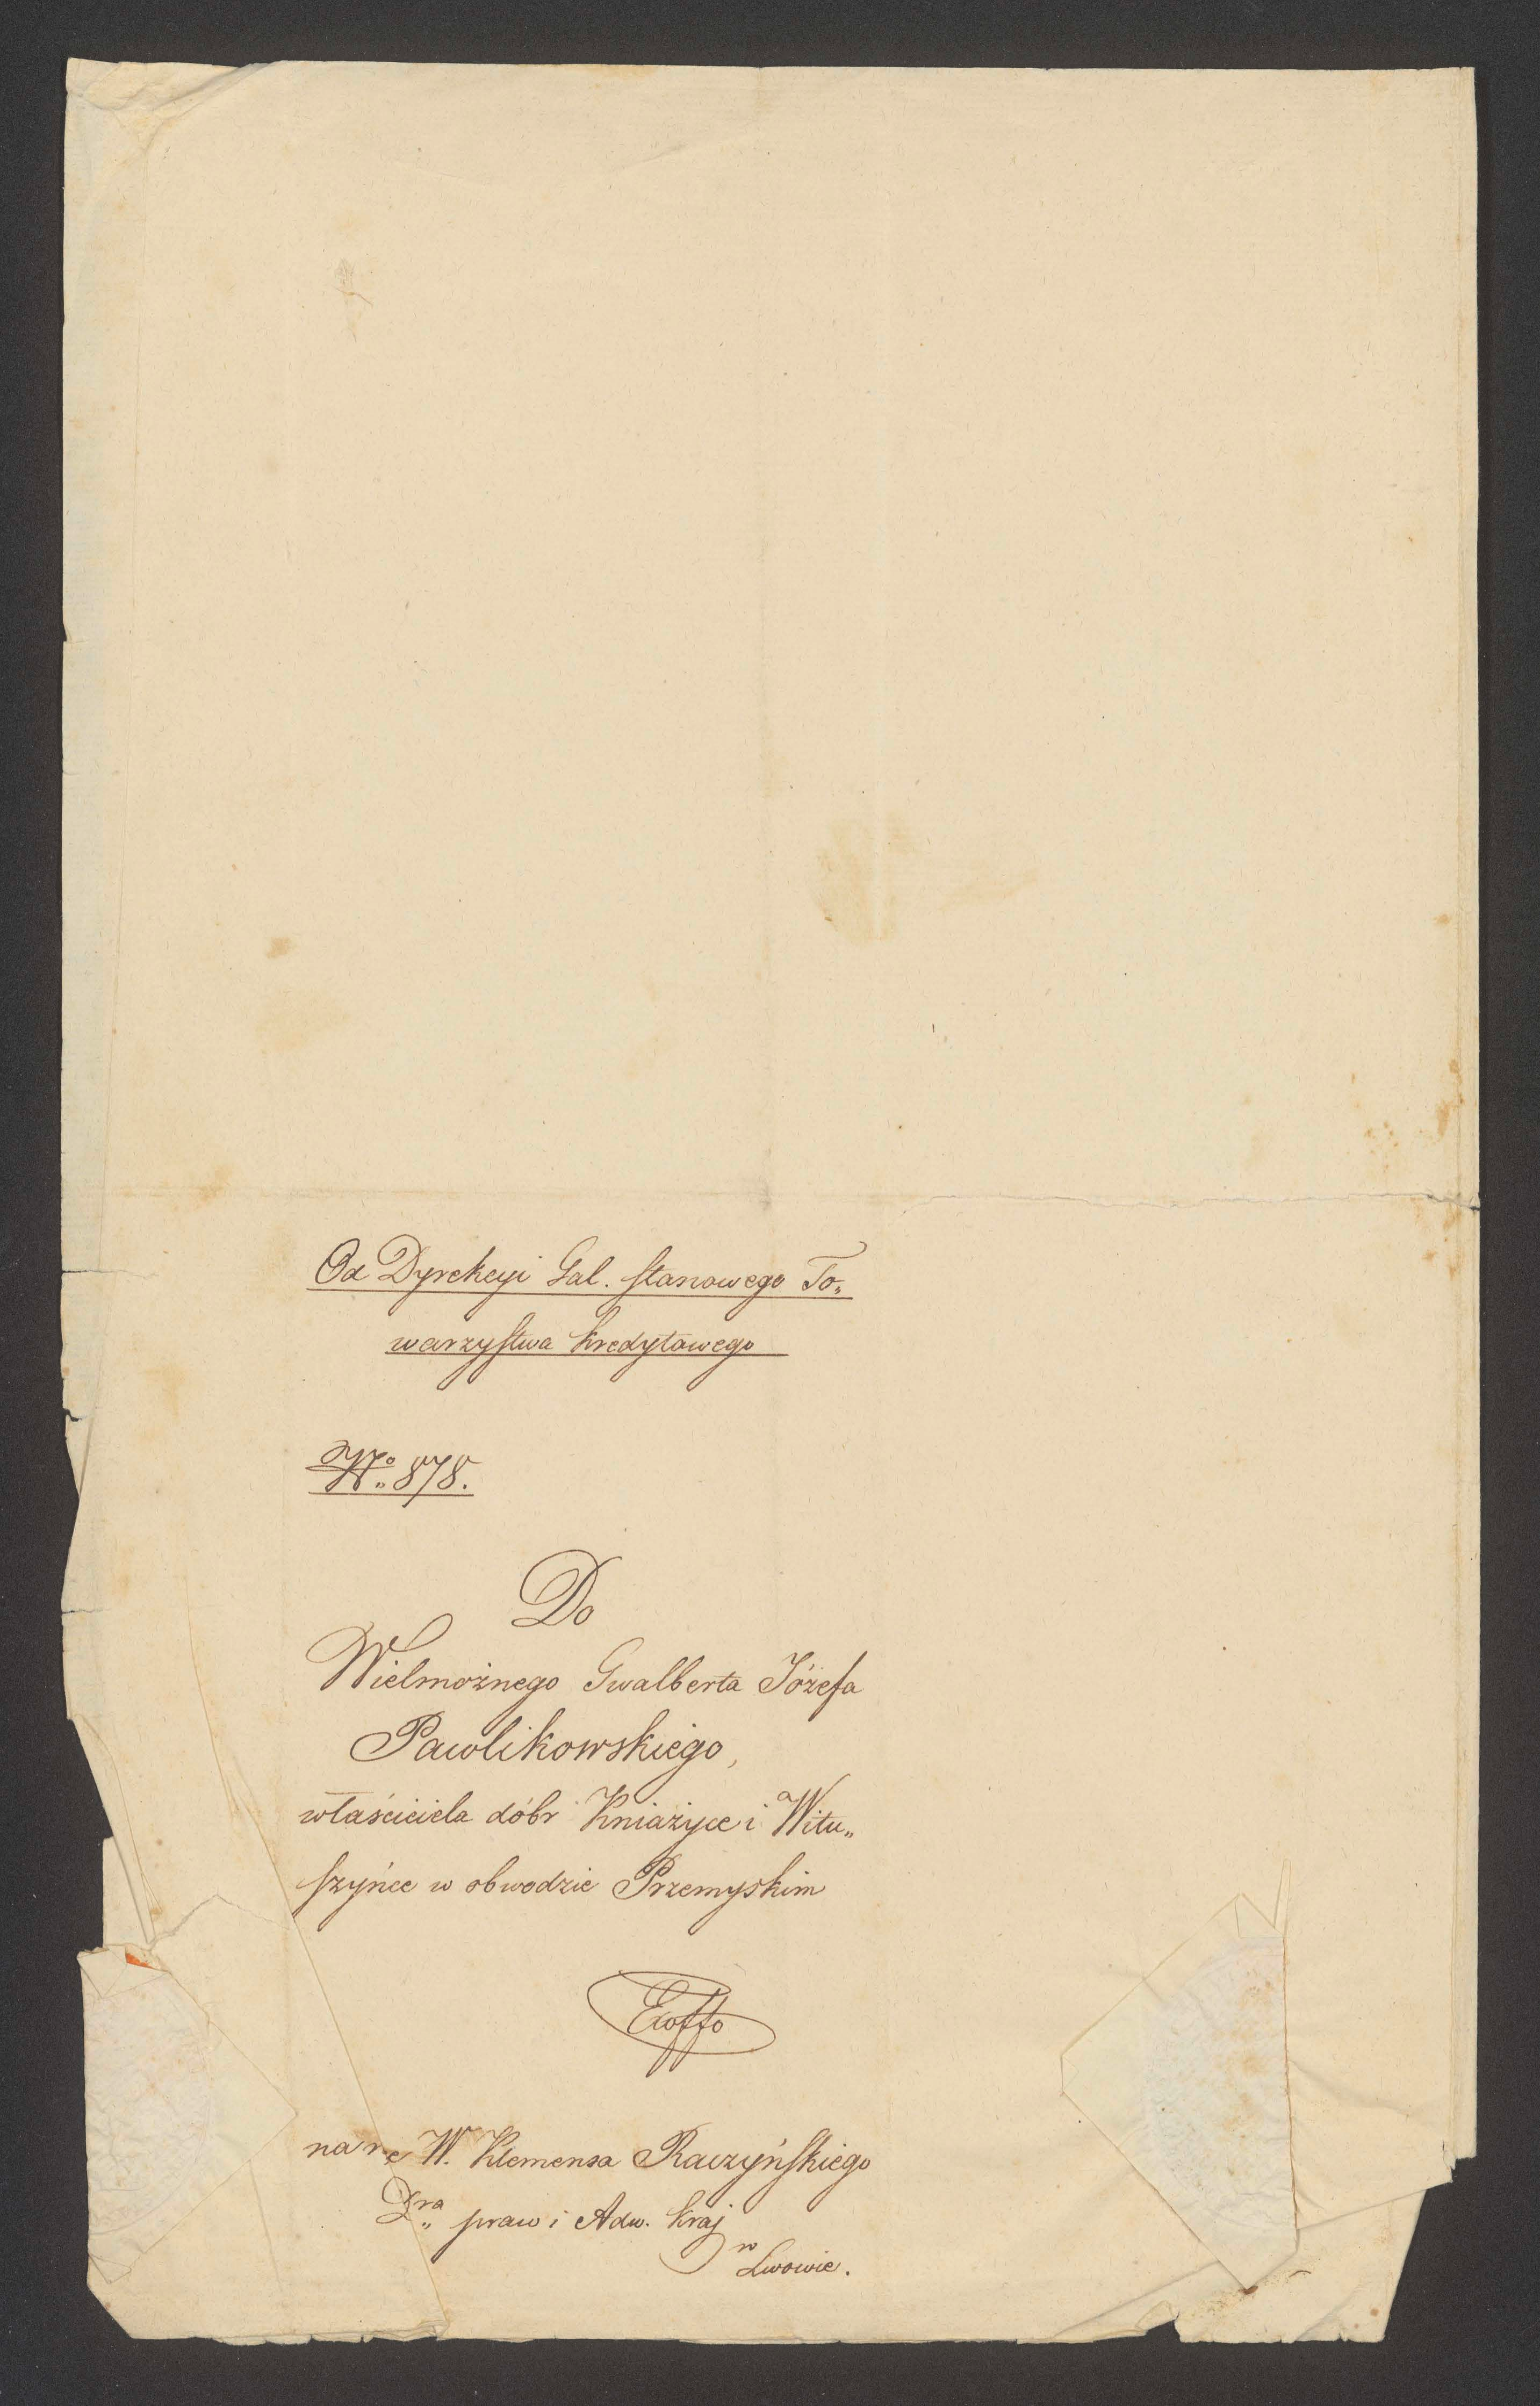 Od Dyrekcyi Gal. stanowego To„
warzystwa kredytowego
No„ 878.
Do
Wielmożnego Gwalberta Józefa
Pawlikowskiego,
właściciela dóbr Kniażyce i Witu„
szyńce w obwodzie Przemyskim
na rę W. Klemensa Raczyńskiego
Dra„ praw i Adw. kraj
w Lwowie.